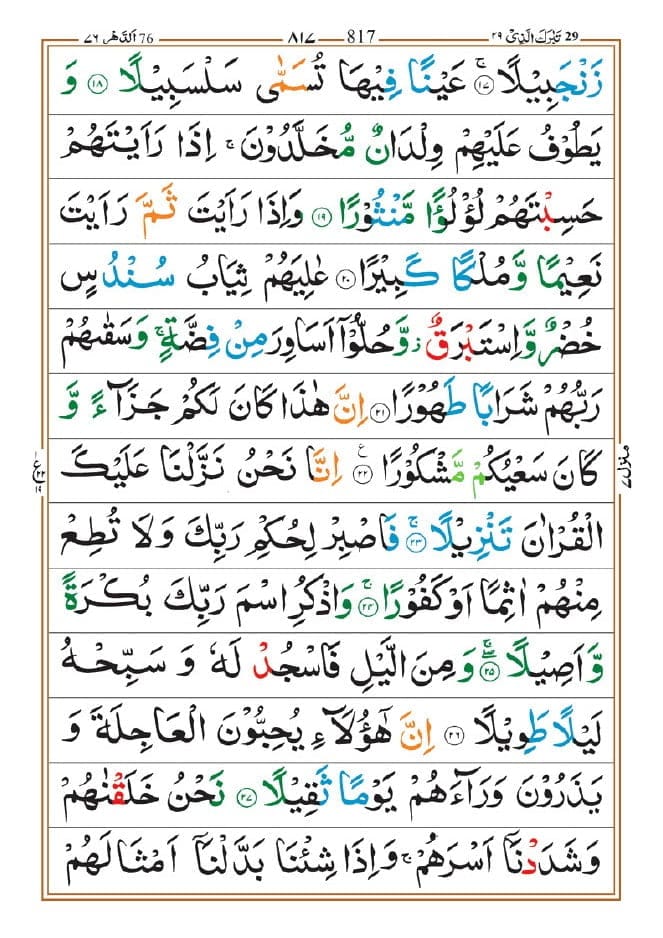 29 تَبٰرَكَ الَّذِیْ ۲۹ 817 ۸۱۷ 76 اَلدَّهْر ۷۶
زَنْجَبِيْلًا ۚ‏ ۱۷ عَيْنًا فِيْهَا تُسَمّٰى سَلْسَبِيْلًا ۱۸ وَ
يَطُوْفُ عَلَيْهِمْ وِلْدَانٌ مُّخَلَّدُوْنَ ۚ اِذَا رَاَيْتَهُمْ
حَسِبْتَهُمْ لُؤْلُؤًا مَّنْثُوْرًا ۱۹ وَاِذَا رَاَيْتَ ثَمَّ رَاَيْتَ
نَعِيْمًا وَّمُلْكًا كَبِيْرًا ۲۰ عٰلِيَهُمْ ثِيَابُ سُنْدُسٍ
خُضْرٌ وَّاِسْتَبْرَقٌ ز وَّحُلُّوْۤا اَسَاوِرَ مِنْ فِضَّةٍ ۚ وَسَقٰىهُمْ
رَبُّهُمْ شَرَابًا طَهُوْرًا ۲۱ اِنَّ هٰذَا كَانَ لَكُمْ جَزَآءً وَّ
كَانَ سَعْيُكُمْ مَّشْكُوْرًا ۲۲ ع اِنَّا نَحْنُ نَزَّلْنَا عَلَيْكَ
الْقُرْاٰنَ تَنْزِيْلًا ۚ ۲۳ فَاصْبِرْ لِحُكْمِ رَبِّكَ وَلَا تُطِعْ
مِنْهُمْ اٰثِمًا اَوْ كَفُوْرًا ۚ ۲۴ وَاذْكُرِ اسْمَ رَبِّكَ بُكْرَةً
وَّاَصِيْلًا ۖۚ ۲۵ وَمِنَ الَّيْلِ فَاسْجُدْ لَهٗ وَ سَبِّحْهُ
لَيْلًا طَوِيْلًا ۲۶ اِنَّ هٰٓؤُلَآءِ يُحِبُّوْنَ الْعَاجِلَةَ وَ
يَذَرُوْنَ وَرَآءَهُمْ يَوْمًا ثَقِيْلًا ۲۷ نَحْنُ خَلَقْنٰهُمْ
وَشَدَدْنَاۤ اَسْرَهُمْ ۚ وَاِذَا شِئْنَا بَدَّلْنَاۤ اَمْثَالَهُمْ
منزل ۷